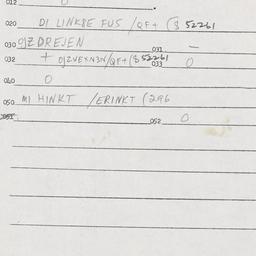 012
020 DI LINKSE FUS /QF+ (§ 52261
030 OJZDREJEN 031 –
032 + OJZVEXN3N/QF+(§ 52261 033 0
040 0
050 MI HINKT /ERINKT (296
052 0